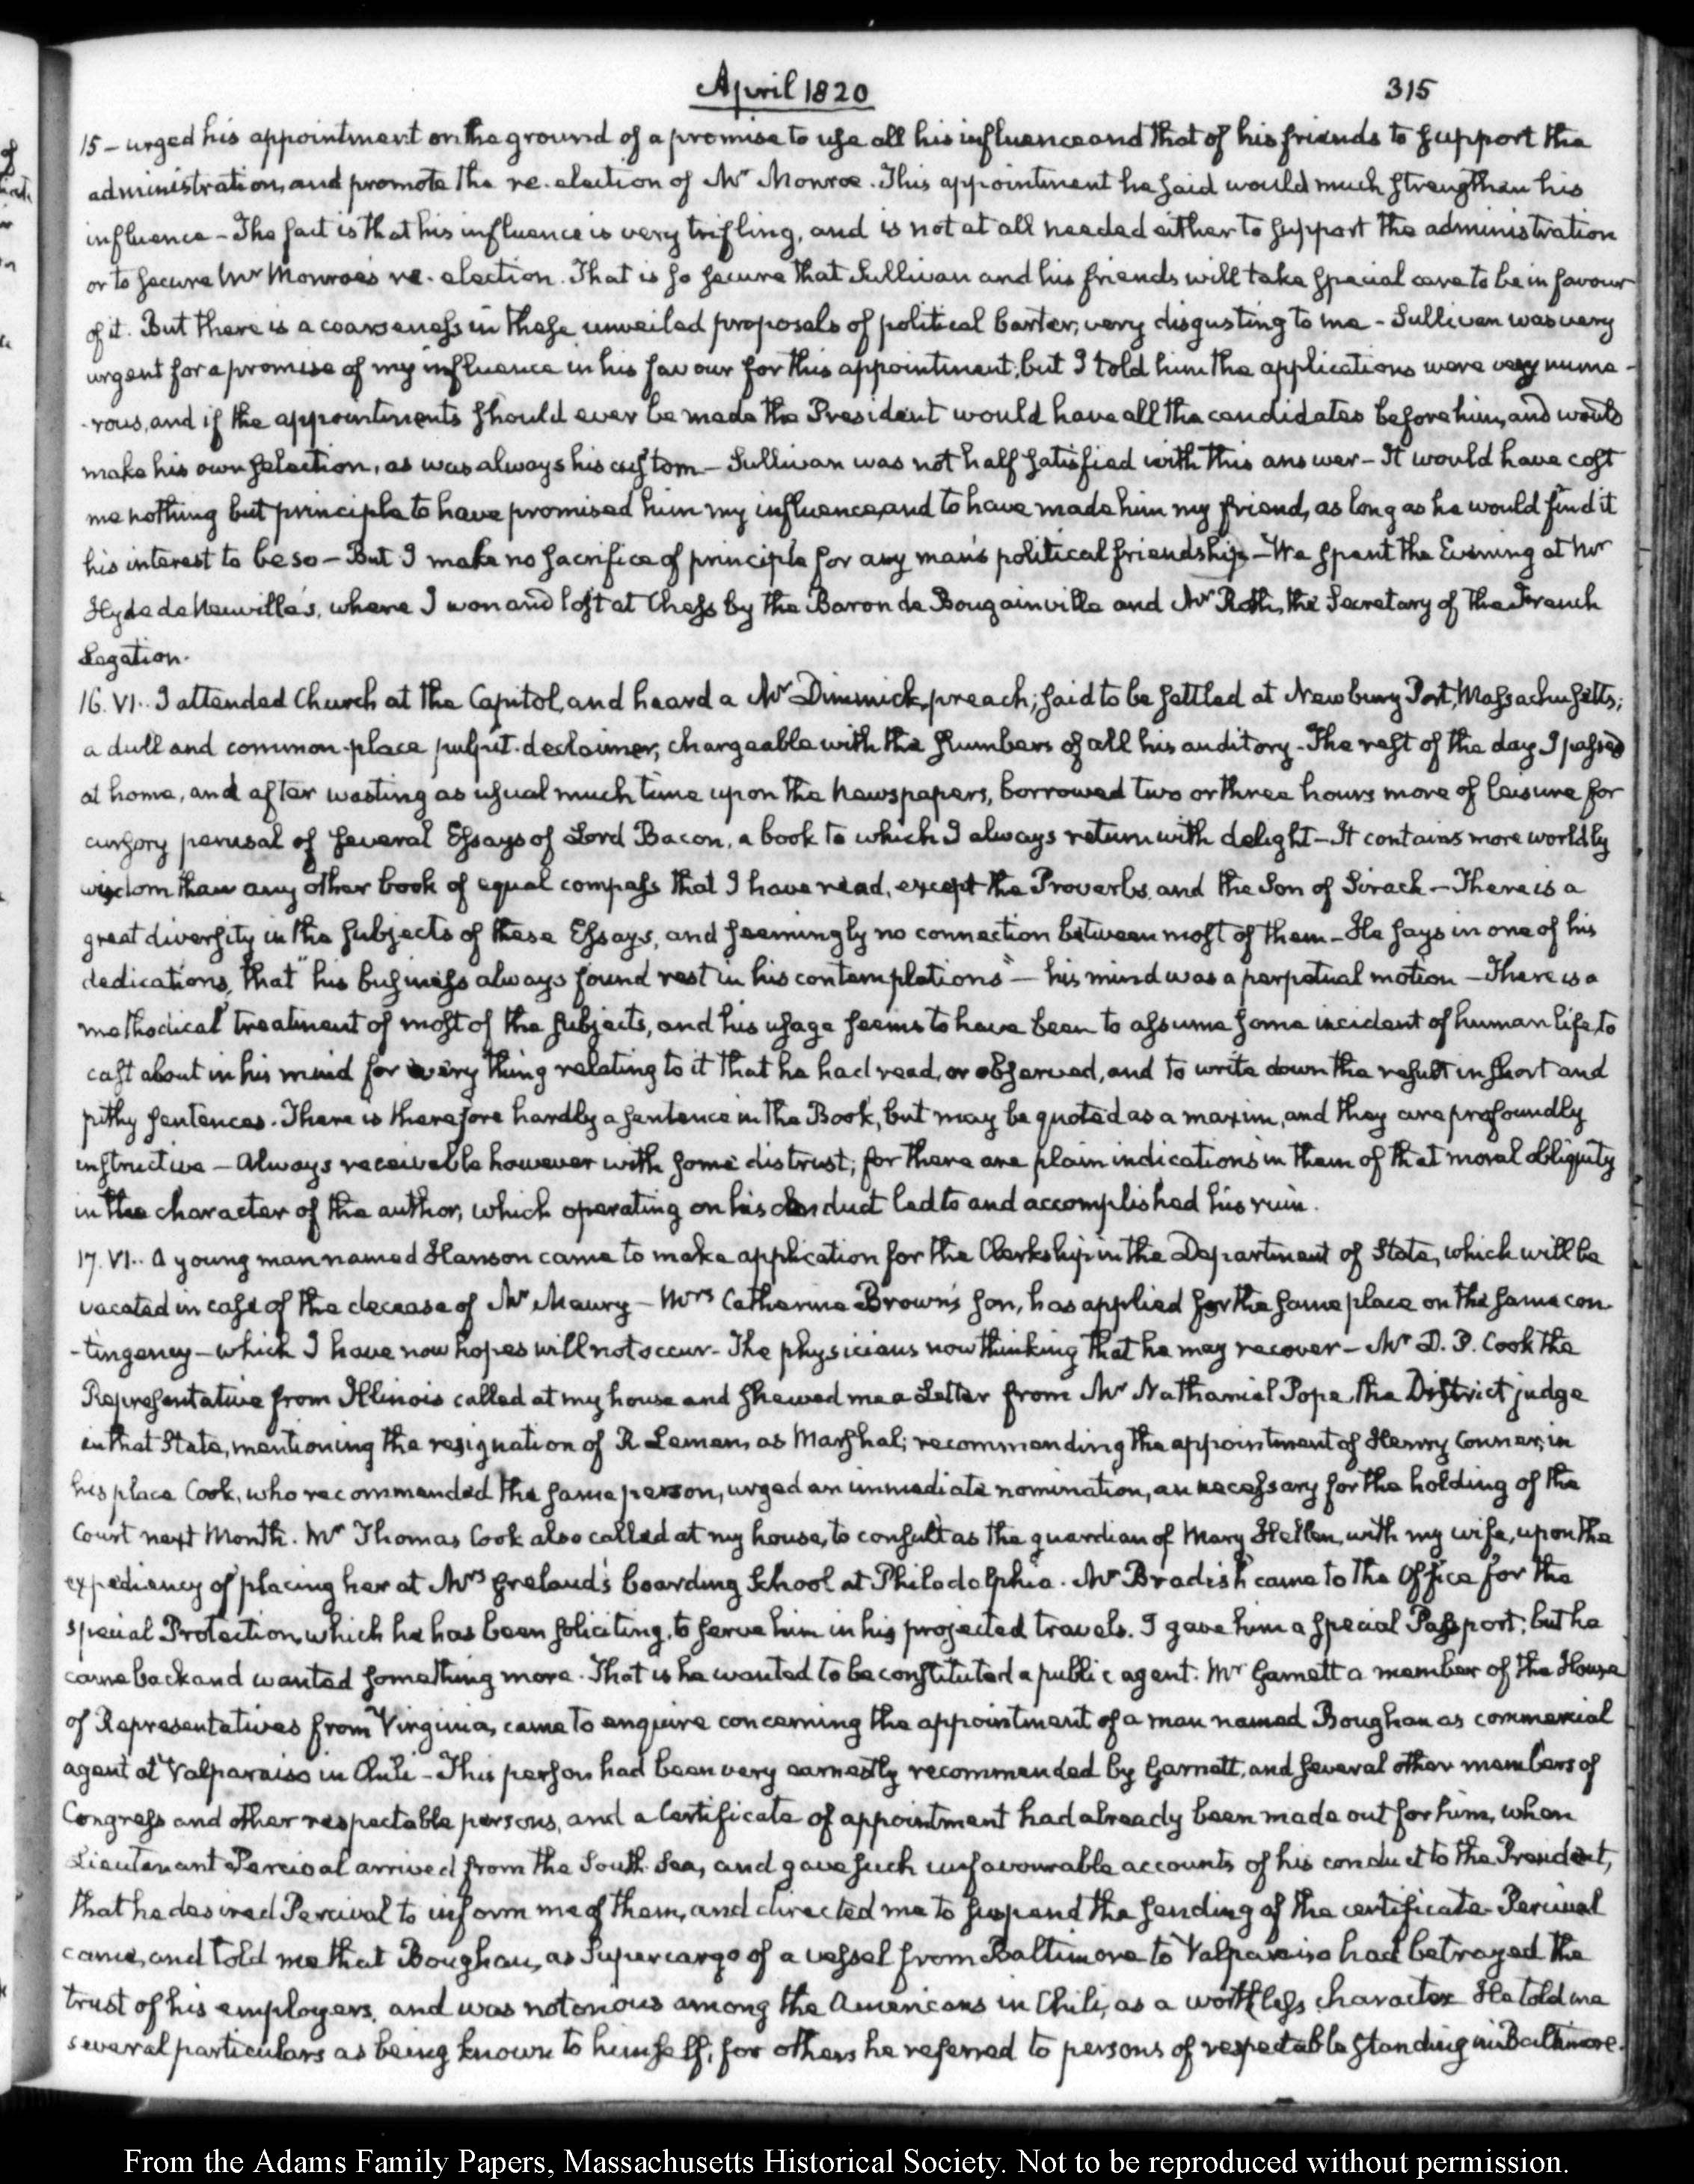 April 1820
315
15 – urged his appointment on the ground of a promise to use all his influence and that of his friends to support the
administration, and promote the re-election of Mr Monroe. This appointment he said would much strengthen his
influence – The fact is that his influence is very trifling, and is not at all needed either to support the administration
or to secure Mr Monroe's re-election. That is so secure that Sullivan and his friends will take special care to be in favour
of it. But there is a coarseness in these unveiled proposals of political barter, very disgusting to me – Sullivan was very
urgent for a promise of my influence in his favour for this appointment; but I told him the applications were very nume-
-rous, and if the appointments should ever be made the President would have all the candidates before him, and would
make his own selection, as was always his custom – Sullivan was not half satisfied with this answer – It would have cost
me nothing but principle to have promised him my influence, and to have made him my friend, as long as he would find it
his interest to be so – But I make no sacrifice of principle for any man's political friendship – We spent the Evening at Mr
Hyde de Neuville's, where I won and lost at Chess by the Baron de Bougainville and Mr Roth, the Secretary of the French
Legation.
16. VI.. I attended Church at the Capitol, and heard a Mr Dimmick, preach; said to be settled at Newbury Port, Massachusetts;
a dull and common-place pulpit-declaimer, chargeable with the slumbers of all his auditory – The rest of the day I passed
at home, and after wasting as usual much time upon the Newspapers, borrowed two or three hours more of leisure for
cursory perusal of several Essays of Lord Bacon, a book to which I always return with delight – It contains more worldly
wisdom than any other book of equal compass that I have read, except the Proverbs, and the Son of Sirach – There is a
great diversity in the subjects of these Essays, and seemingly no connection between most of them – He says in one of his
dedications, that "his business always found rest in his contemplations" – his mind was a perpetual motion – There is a
methodical treatment of most of the subjects, and his usage seems to have been to assume some incident of human life, to
cast about in his mind for every thing relating to it that he had read, or observed, and to write down the result in short and
pithy sentences. There is therefore hardly a sentence in the Book, but may be quoted as a maxim, and they are profoundly
instructive – Always receivable however with some distrust; for there are plain indications in them of that moral obliquity
in the character of the author, which operating on his conduct led to and accomplished his ruin.
17. VI.. A young man named Hanson came to make application for the Clerkship in the Department of State, which will be
vacated in case of the decease of Mr Maury – Mrs Catherine Brown's son, has applied for the same place on the same con-
-tingency – which I have now hopes will not occur – The physicians now thinking that he may recover – Mr D. P. Cook the
Representative from Illinois called at my house and shewed me a Letter from Mr Nathaniel Pope, the District judge
in that State, mentioning the resignation of R Lemen, as Marshal; recommending the appointment of Henry Conner, in
his place Cook, who recommended the same person, urged an immediate nomination, as necessary for the holding of the
Court next Month. Mr Thomas Cook also called at my house, to consult as the guardian of Mary Hellen, with my wife, upon the
expediency of placing her at Mrs Greland's boarding School at Philadelphia. Mr Bradish came to the Office for the
special Protection, which he has been soliciting, to serve him in his projected travels. I gave him a special Passport; but he
came back and wanted something more. That is he wanted to be constituted a public agent. Mr Garnett a member of the House
of Representatives from Virginia, came to enquire concerning the appointment of a man named Boughan as commercial
agent at Valparaiso in Chili – This person had been very earnestly recommended by Garnett, and several other members of
Congress and other respectable persons, and a Certificate of appointment had already been made out for him, when
Lieutenant Percival arrived from the South Sea, and gave such unfavourable accounts of his conduct to the President,
that he desired Percival to inform me of them, and directed me to suspend the sending of the certificate – Percival
came, and told me that Boughan, as Supercargo of a vessel from Baltimore to Valparaiso had betrayed the
trust of his employers, and was notorious among the Americans in Chili, as a worthless character He told me
several particulars as being known to himself, for others he referred to persons of respectable standing in Baltimore.
From the Adams Family Papers, Massachusetts Historical Society. Not to be reproduced without permission.